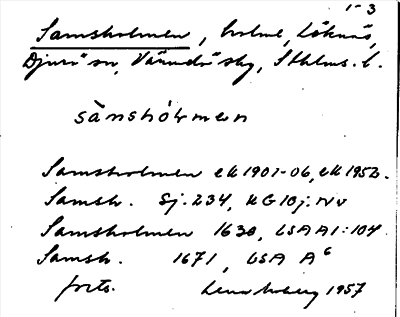 1-3
Samsholmen, holme, Löknäs,
Djurö sn, Värmdö sky, Sthlms l.
sämshólmen
Samsholmen ek 1901-06, ek 1952.
Samsh. Sj. 234, KG 10j. NV
Samsholmen 1630, LSA A1:104
Samsh. 1671, LSA A6
forts. 1957